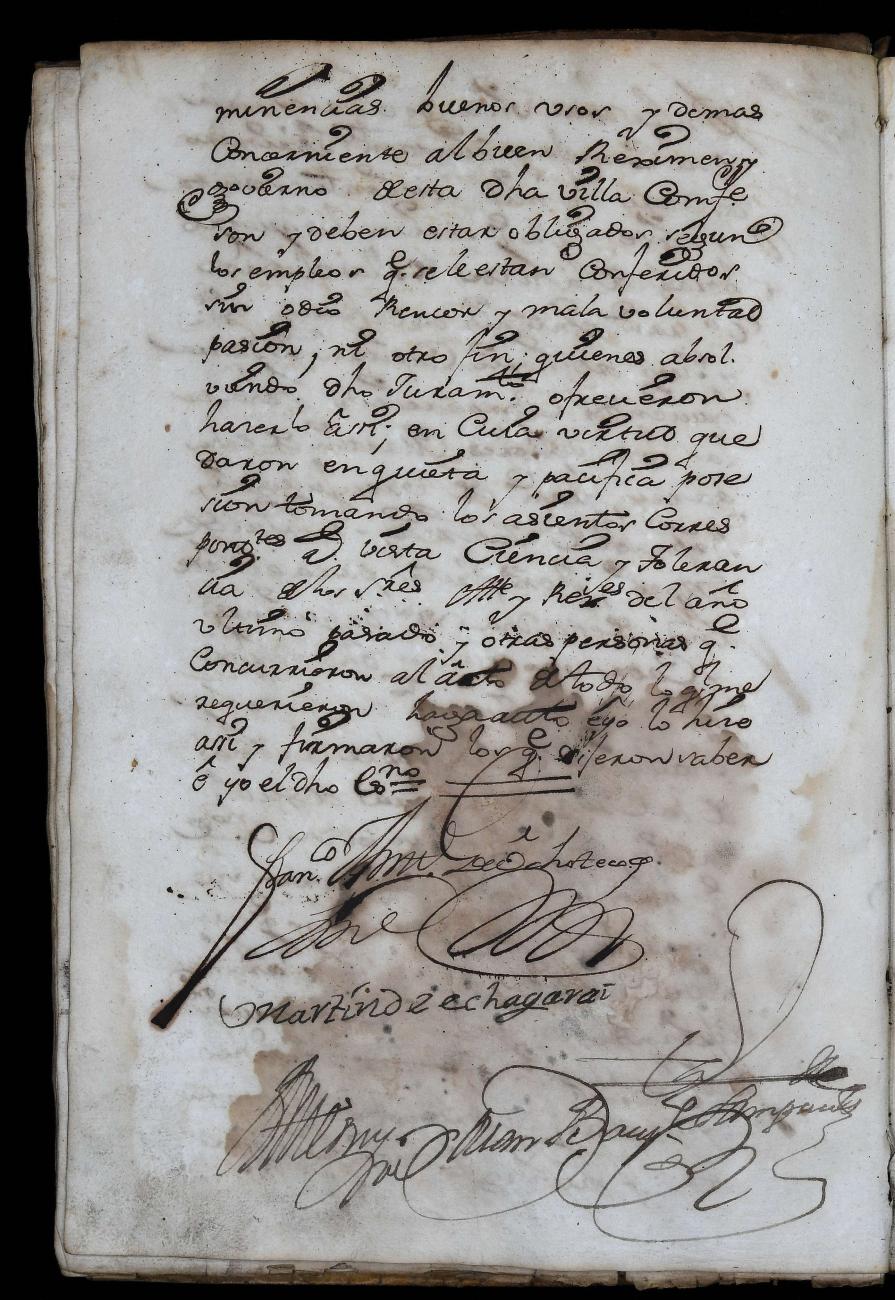 minencias buenos vsos y demas
Concerniente al buen Reximen y
govierno desta dha villa Comfe
son y deben estar obligados segun
los empleos q.e se le estan Conferidos
sin odio Rencor y mala voluntad
pasion, ni otro fin; quienes absol
viendo dho Juram.to ofrecieron
hacerlo assi; en Cuia virtud que
daron en quieta y pacifica pose
sion tomando los asientos Corres
pond.tes a vista Ciencia y Toleran
cia dhos Sres Alle y Rex.es del año
vltimo pasado y otras personas q.e
Concurrieron al acto de todo lo q me
requerieron haga auto e yo lo hice
assi y firmaron los q.e dijeron saber
e yo el dho Es.no
Fran.co Ant.
Martin de echagarai
Juan Baup.ta de